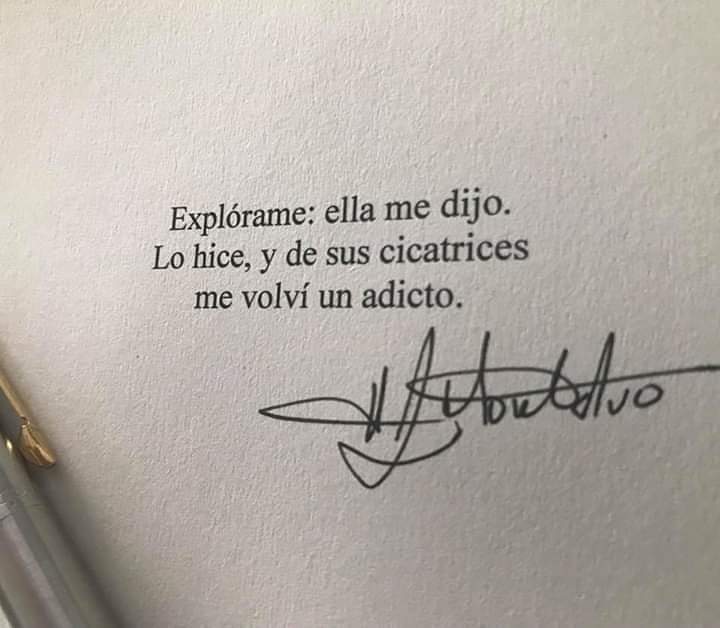 Explórame: ella me dijo.
Lo hice, y de sus cicatrices
me volví un adicto.